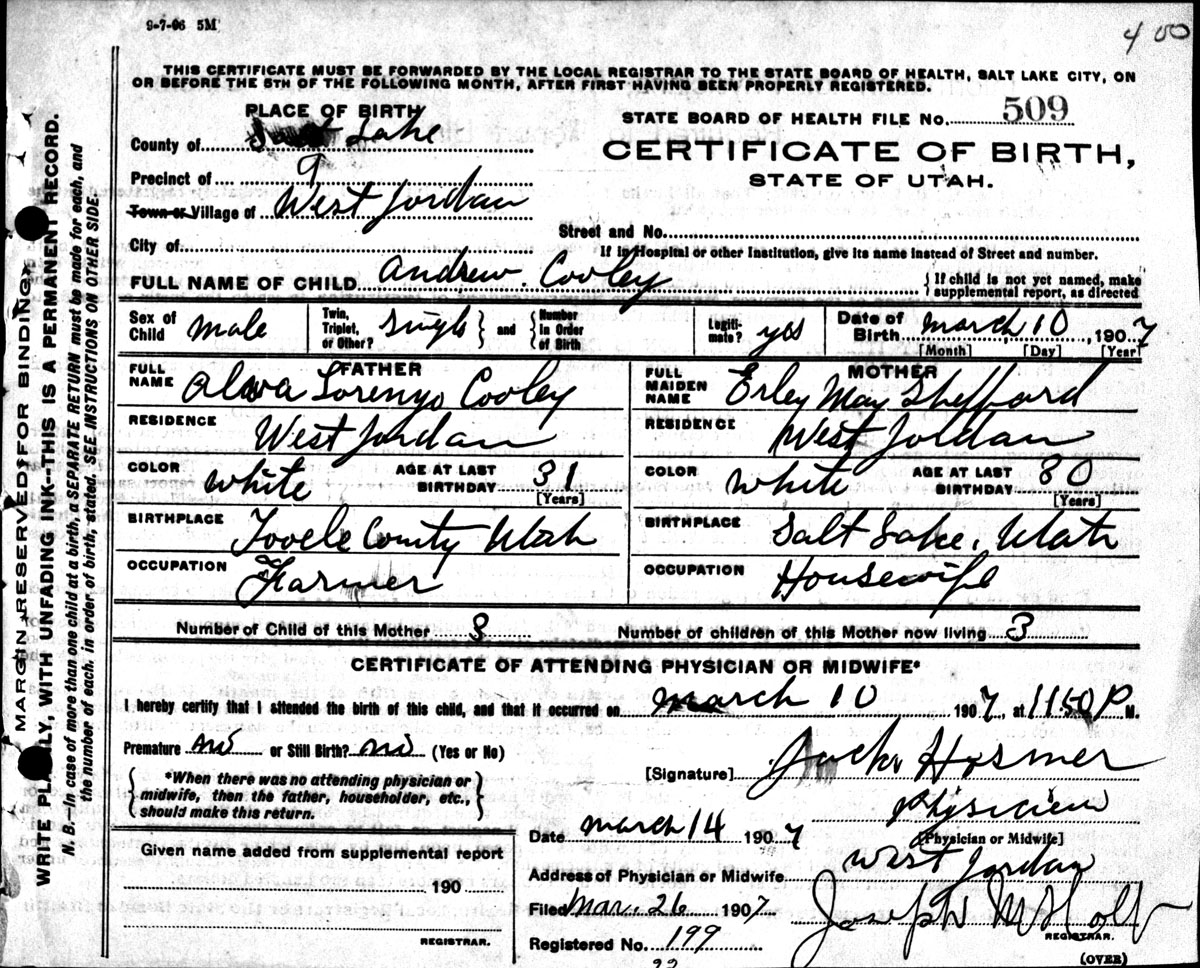 9-7-06 5M
400
THIS CERTIFICATE MUST BE FORWARDED BY THE LOCAL REGISTRAR TO THE STATE BOARD OF HEALTH, SALT LAKE CITY, ON
OR BEFORE THE 5TH OF THE FOLLOWING MONTH, AFTER FIRST HAVING BEEN PROPERLY REGISTERED.
PLACE OF BIRTH
County of Lake
Precinct of 9
Town or Village of West Jordan
City of
STATE BOARD OF HEALTH FILE No. 509
CERTIFICATE OF BIRTH,
STATE OF UTAH.
Street and No.
If in Hospital or other Institution, give its name instead of Street and number.
FULL NAME OF CHILD Andrew Cooley
If child is not yet named, make
supplemental report, as directed
Sex of Child male
Twin, Triplet, or Other? single and Number in Order of Birth
Legitimate? yes
Date of Birth March 10, 1907
[Month] [Day] [Year]
FATHER
FULL NAME Alva Lorenzo Cooley
RESIDENCE West Jordan
COLOR white AGE AT LAST BIRTHDAY 31
[Years]
BIRTHPLACE Tooele County Utah
OCCUPATION Farmer
MOTHER
FULL MAIDEN NAME Erley May Shefford
RESIDENCE West Jordan
COLOR white AGE AT LAST BIRTHDAY 30
[Years]
BIRTHPLACE Salt Lake, Utah
OCCUPATION Housewife
Number of Child of this Mother 3 Number of children of this Mother now living 3
CERTIFICATE OF ATTENDING PHYSICIAN OR MIDWIFE*
I hereby certify that I attended the birth of this child, and that it occurred on March 10 1907, at 1150 P M.
Premature no or Still Birth? no (Yes or No)
*When there was no attending physician or
midwife, then the father, householder, etc.,
should make this return.
[Signature] Hosmer
Physician
[Physician or Midwife]
Date March 14 1907
Address of Physician or Midwife West Jordan
Filed Mar. 26 1907 Joseph M Holt
REGISTRAR.
Registered No. 199
22
(OVER)
Given name added from supplemental report
190
REGISTRAR.
MARGIN RESERVED FOR BINDING
WRITE PLAINLY, WITH UNFADING INK--THIS IS A PERMANENT RECORD.
N. B.--In case of more than one child at a birth, a SEPARATE RETURN must be made for each, and
the number of each, in order of birth, stated. SEE INSTRUCTIONS ON OTHER SIDE.